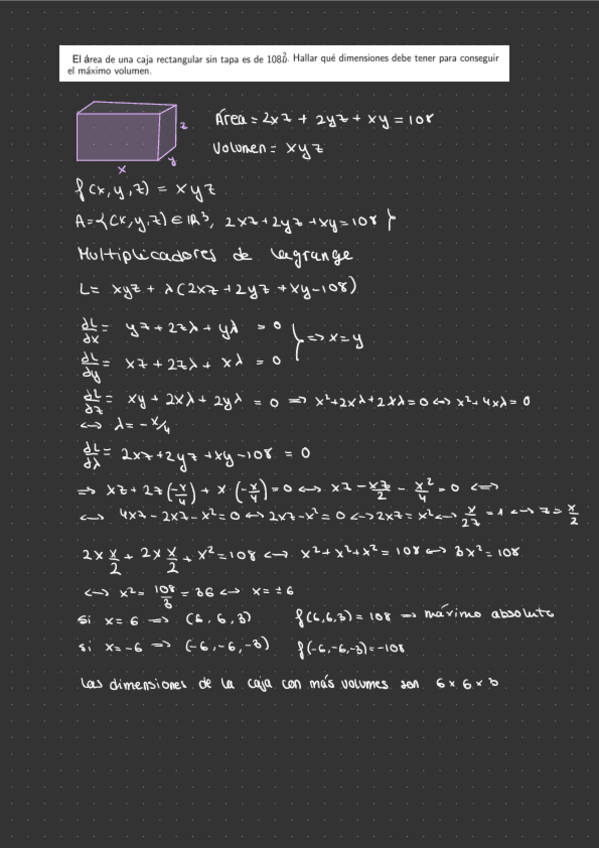 El área de una caja rectangular sin tapa es de 108. Hallar qué dimensiones debe tener para conseguir
el máximo volumen.
z
y
x
Área = 2xz + 2yz + xy = 108
Volumen = xyz
f(x,y,z) = xyz
A = {(x,y,z) ∈ ℝ³, 2xz + 2yz + xy = 108}
Multiplicadores de lagrange
L = xyz + λ(2xz + 2yz + xy - 108)
∂L/∂x = yz + 2zλ + yλ = 0
} => x = y
∂L/∂y = xz + 2zλ + xλ = 0
∂L/∂z = xy + 2xλ + 2yλ = 0 => x² + 2xλ + 2xλ = 0 <-> x² + 4xλ = 0
<-> λ = -x/4
∂L/∂λ = 2xz + 2yz + xy - 108 = 0
=> xz + 2z(-x/4) + x·(-x/4) = 0 <-> xz - xz/2 - x²/4 = 0 <=>
<-> 4xz - 2xz - x² = 0 <-> 2xz - x² = 0 <-> 2xz = x² <-> x/2z = 1 <-> z = x/2
2x x/2 + 2x x/2 + x² = 108 <-> x² + x² + x² = 108 <-> 3x² = 108
<-> x² = 108/3 = 36 <-> x = ±6
si x = 6 => (6, 6, 3) f(6,6,3) = 108 => máximo absoluto
si x = -6 => (-6, -6, -3) f(-6,-6,-3) = -108
Las dimensiones de la caja con más volumes son 6 x 6 x 3